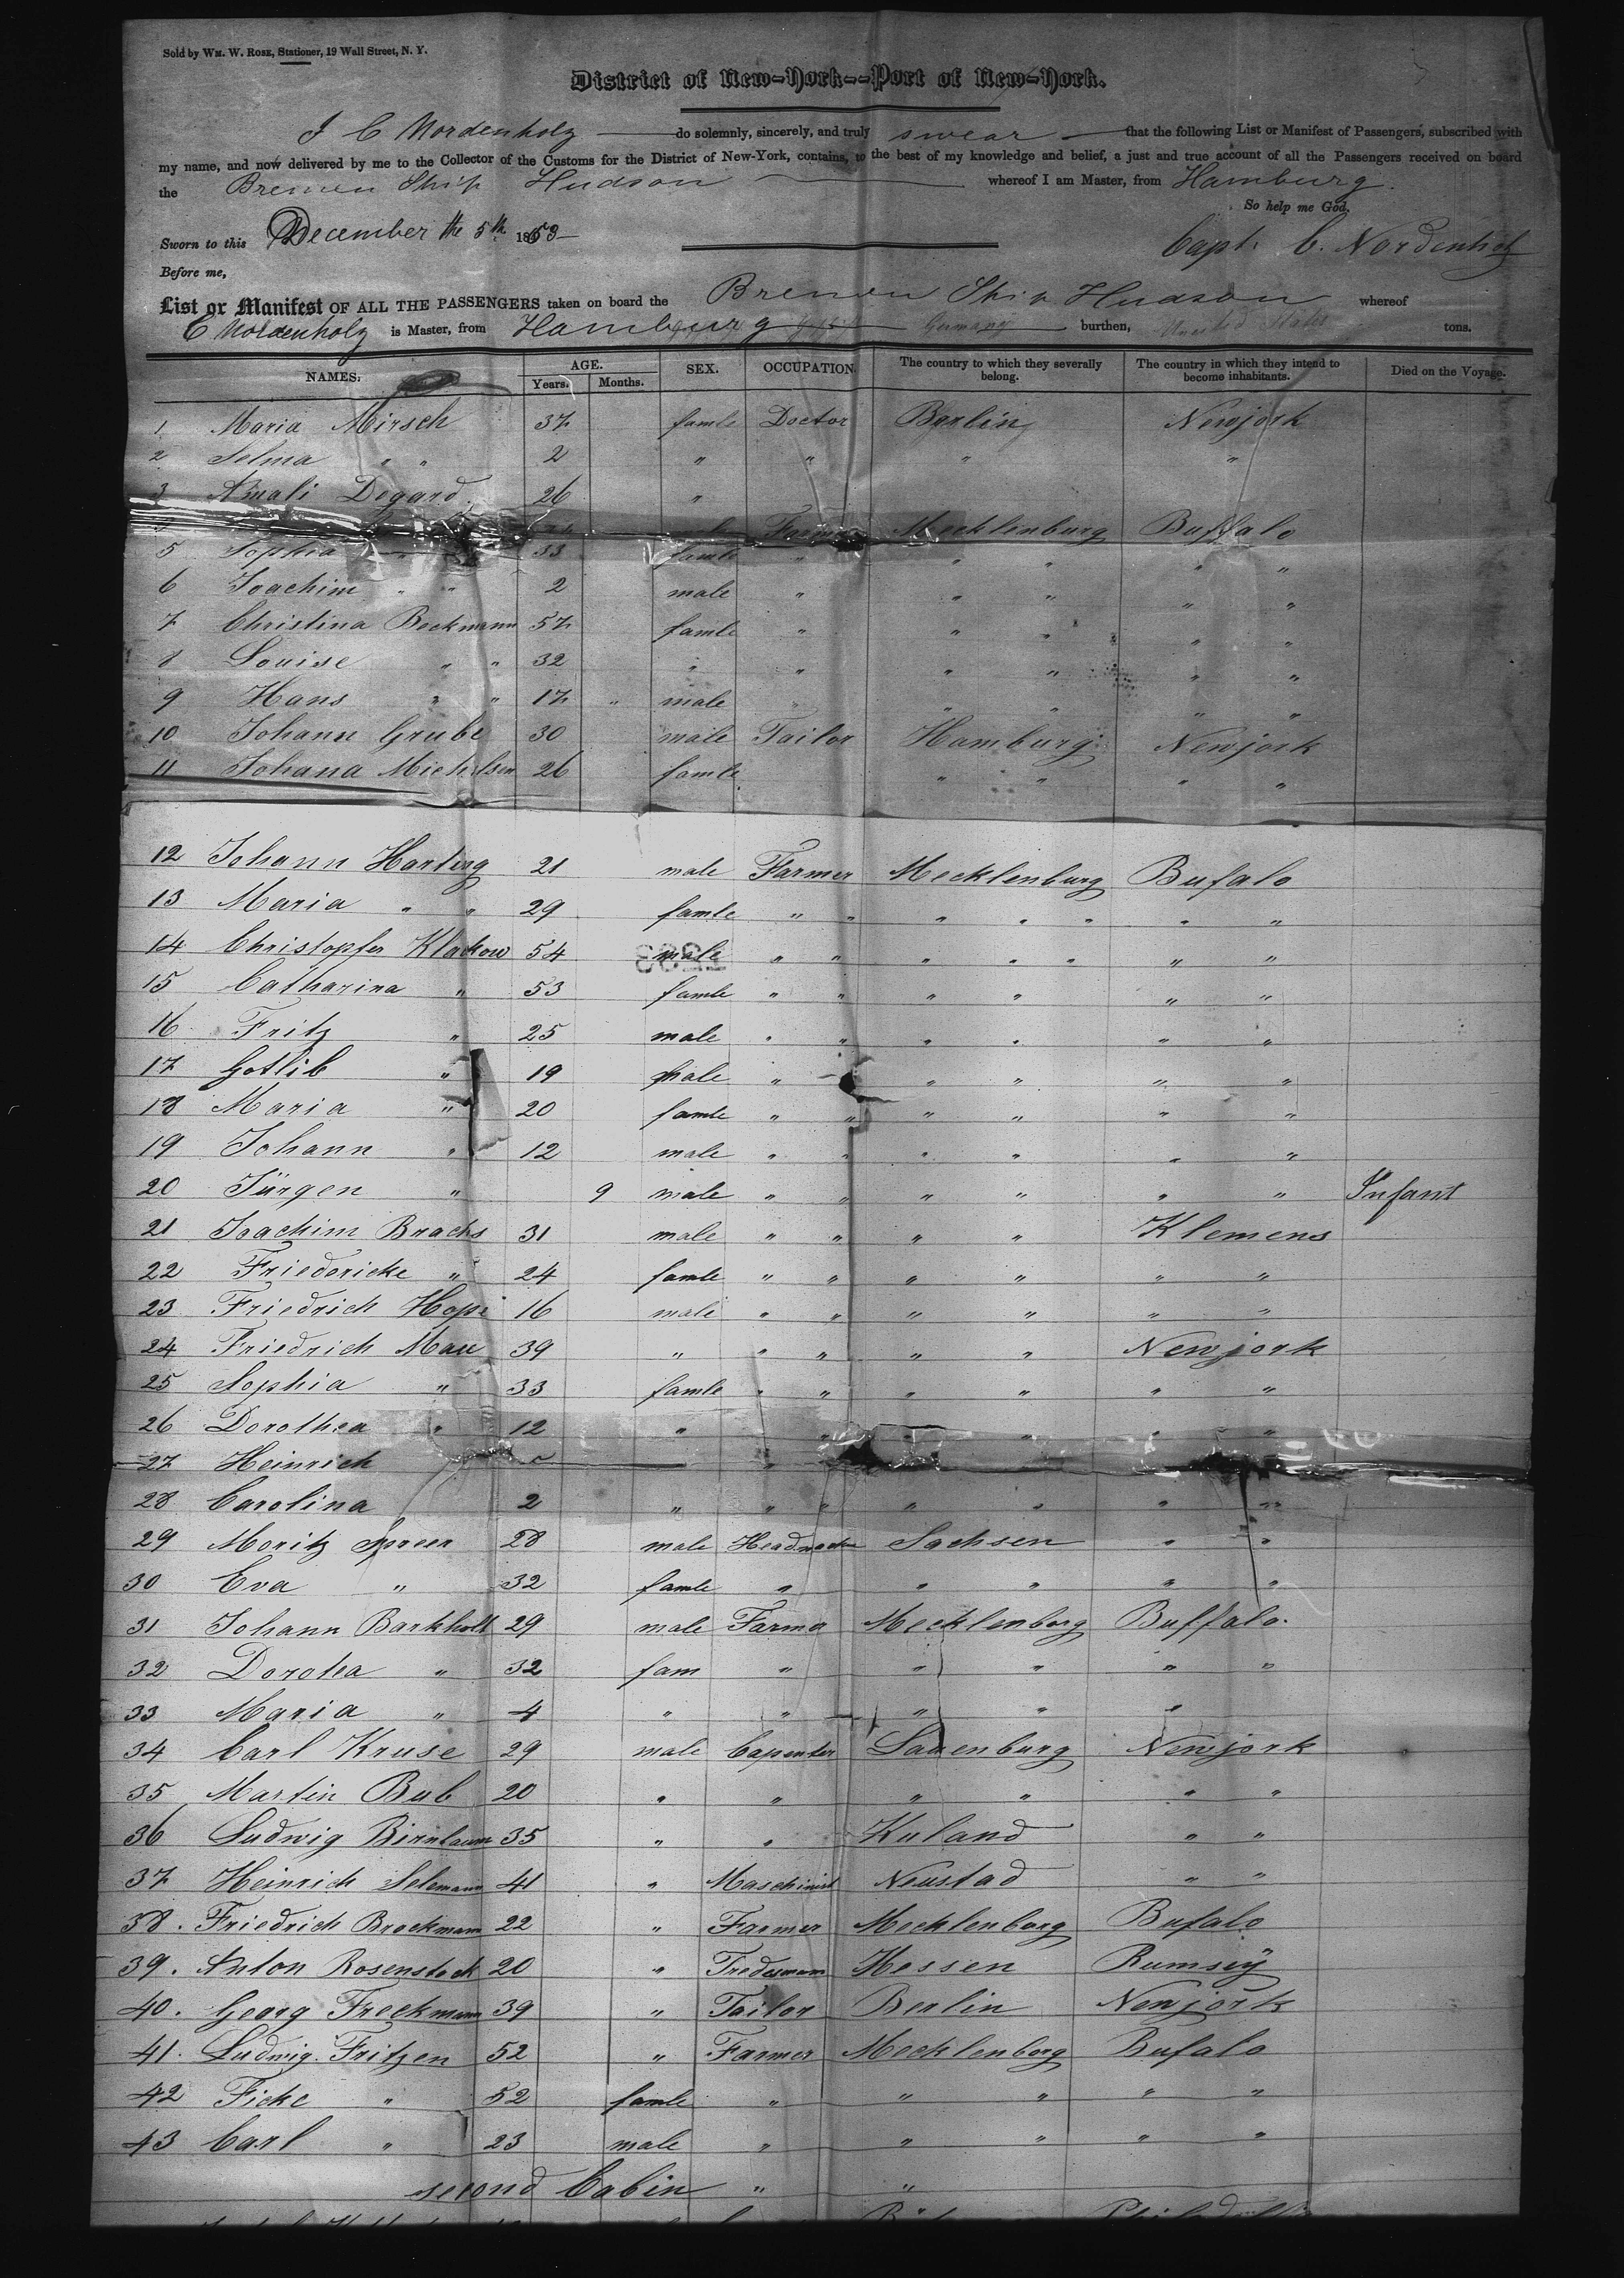 Sold by Wm. W. Rose, Stationer, 19 Wall Street, N. Y.
District of New-York--Port of New-York.
I C Nordenholz do solemnly, sincerely, and truly swear that the following List or Manifest of Passengers, subscribed with
my name, and now delivered by me to the Collector of the Customs for the District of New-York, contains, to the best of my knowledge and belief, a just and true account of all the Passengers received on board
the Bremen Ship Hudson whereof I am Master, from Hamburg.
So help me God.
Sworn to this December the 5th 1853
Capt. C. Nordenholz
Before me,
List or Manifest OF ALL THE PASSENGERS taken on board the Bremen Ship Hudson whereof
C Nordenholz is Master, from Hamburg Germany burthen, United States tons.
NAMES. AGE. Years. Months. SEX. OCCUPATION. The country to which they severally belong. The country in which they intend to become inhabitants. Died on the Voyage.
1 Maria Mirsch 37 famle Doctor Berlin Newjork
2 Selma " " 2 " " " "
3 Amali Degard 26 "
Farmer Mecklenburg Buffalo
5 Sophia 33 famle " " " " "
6 Joachim " " 2 male " " " " "
7 Christina Beckmann 57 famle " " " " "
8 Louise " " 32 " " " " " "
9 Hans " " 17 " male " " " " "
10 Johann Grube 30 male Tailor Hamburg Newjork
11 Johana Michelsen 26 famle " " " "
12 Johann Harting 21 male Farmer Mecklenburg Bufalo
13 Maria " " 29 famle " " " " " " "
14 Christopfer Klackow 54 male " " " " " " "
15 Catharina " 53 famle " " " " " "
16 Fritz " 25 male " " " " " "
17 Gotlib " 19 male " " " " "
18 Maria " 20 famle " " " " " "
19 Johann " 12 male " " " " " "
20 Jürgen " 9 male " " " " " " Infant
21 Joachim Brachs 31 male " " " " Klemens
22 Friedericke " 24 famle " " " " " "
23 Friedrich 16 male " " " " " "
24 Friedrich Mau 39 " " " " " Newjork
25 Sophia " 33 famle " " " " " "
26 Dorothea " 12 " " " " " "
27 Heinrich
28 Carolina 2 " " " " " " "
29 Moritz Spreer 28 male Sachsen " "
30 Eva " 32 famle " " " " "
31 Johann Barkholt 29 male Farmer Mecklenborg Buffalo.
32 Dorotea " 32 fam " " " " "
33 Maria " 4 " " " " "
34 Carl Kruse 29 male Capenter Lauenburg Newjork
35 Martin Bub 20 " " " " " "
36 Ludwig Birnbaum 35 " " Kuland " "
37 Heinrich Selemann 41 " Maschinist Neustad " "
38. Friedrich Brockmann 22 " Farmer Mecklenborg Bufalo
39. Anton Rosenstock 20 " Tredesmann Hessen Rumsey
40. Georg Freckmann 39 " Tailor Berlin Newjork
41. Ludwig Fritzen 52 " Farmer Mecklenborg Bufalo
42 Ficke " 52 famle " " " " "
43 Carl " 23 male " " " " "
second Cabin " "